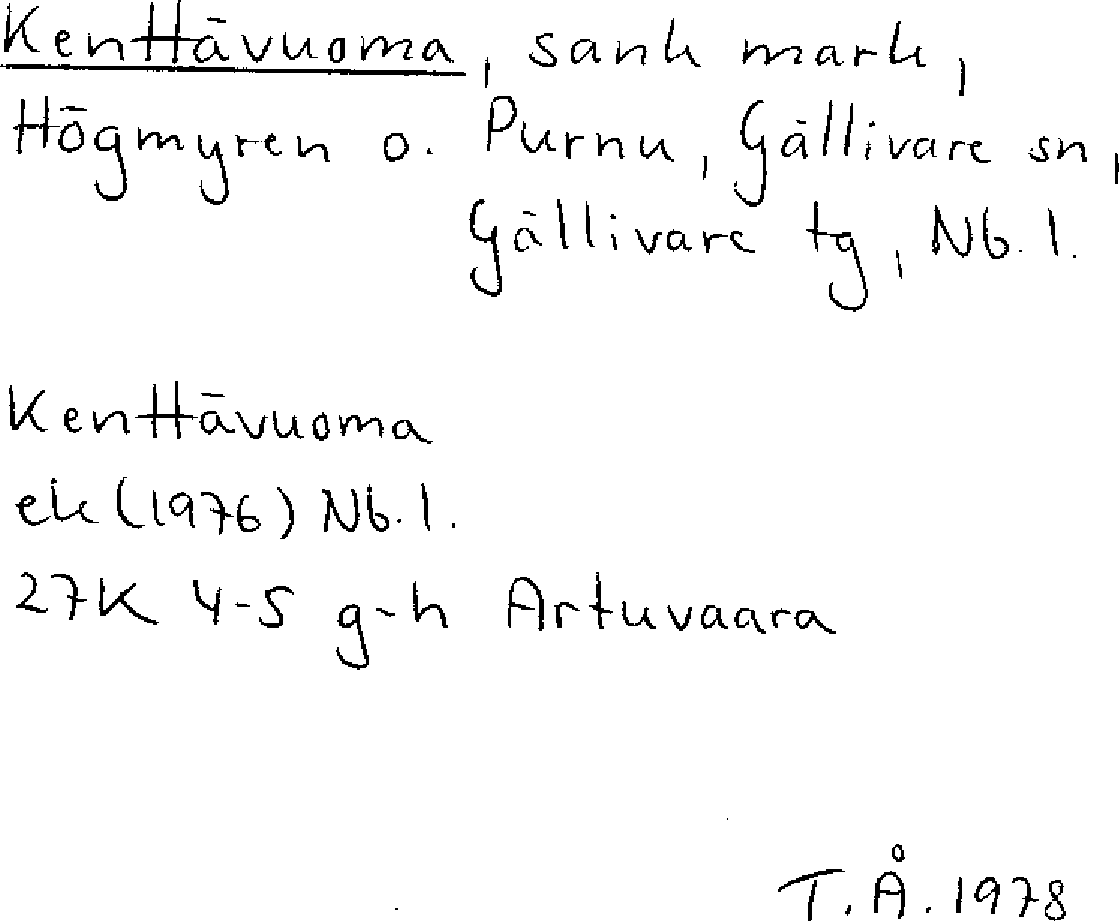 Kenttävuoma, sank mark,
Högmyren o. Purnu, Gällivare sn,
Gällivare tg, Nb. l.
Kenttävuoma
ek (1976) Nb. l.
27K 4-5 g-h Artuvaara
T. Å. 1978